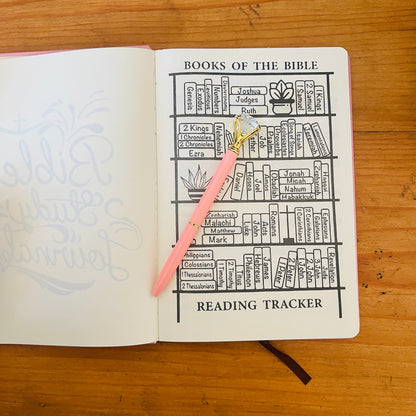 BOOKS OF THE BIBLE
Genesis
Exodus
Leviticus
Numbers
Deuteronomy
Joshua
Judges
Ruth
1 Samuel
2 Samuel
1 Kings
2 Kings
1 Chronicles
2 Chronicles
Ezra
Nehemiah
Esther
Job
Psalms
Proverbs
Ecclesiastes
Song of Songs
Isaiah
Daniel
Hosea
Joel
Amos
Obadiah
Jonah
Micah
Nahum
Habakkuk
Zephaniah
Haggai
Zechariah
Malachi
Matthew
Mark
Luke
John
Acts
Romans
1 Corinthians
2 Corinthians
Galatians
Ephesians
Philippians
Colossians
1 Thessalonians
2 Thessalonians
1 Timothy
2 Timothy
Titus
Philemon
Hebrews
James
1 Peter
2 Peter
1 John
2 John
3 John
Jude
Revelation
READING TRACKER
Bible
Study
Journal